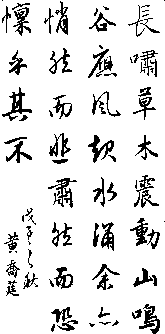 長嘯草木震動山鳴
谷應風起水涌余亦
悄然而悲肅然而恐
懍乎其不
戊子之秋
黃喬莛